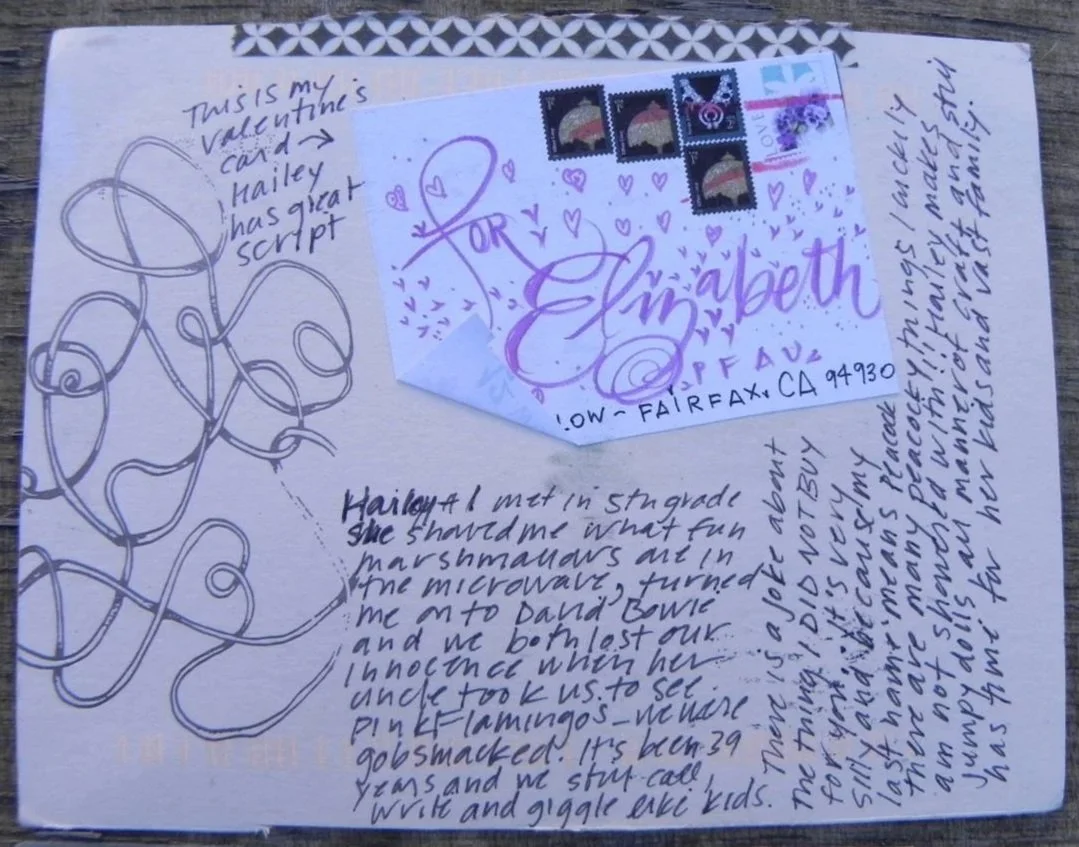 This is my
valentine's
card →
Hailey
has great
script
LOVE
For
Elizabeth
PFAU
LOW - FAIRFAX, CA 94930
Hailey & I met in 5th grade
she showed me what fun
marshmallows are in
the microwave, turned
me on to David Bowie
and we both lost our
innocence when her
uncle took us to see
Pink Flamingos - we were
gobsmacked! It's been 39
years and we still call,
write and giggle like kids.
There is a joke about
the thing I DID NOT BUY
for you: it's very
silly and because my
last name means peacock
there are many peacocky things I luckily
am not showered with!!! Hailey makes
jumpy dolls all manner of craft and still
has time for her kids and vast family.